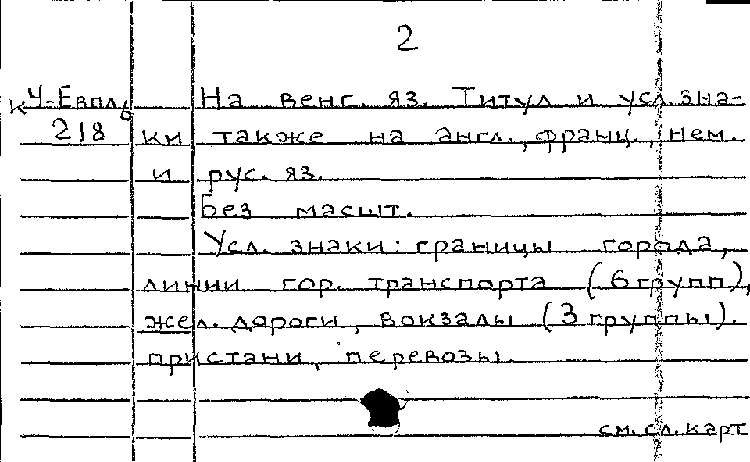 2
К У-Евпл6 На венг. яз. Титул и усл.зна-
218 ки также на англ., франц., нем.
и рус. яз.
Без масшт.
Усл. знаки: границы города,
линии гор. транспорта (6 групп),
жел. дороги, вокзалы (3 группы).
пристани, перевозы.
см. сл. карт